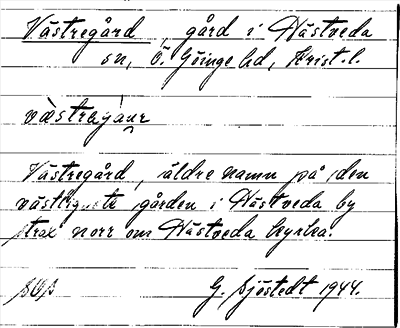 Västregård, gård i Hästveda
sn, Ö. Göinge hd, Krist. l.
Västregård, äldre namn på den
västligaste gården i Hästveda by
strax norr om Hästveda kyrka.
G. Sjöstedt 1944.